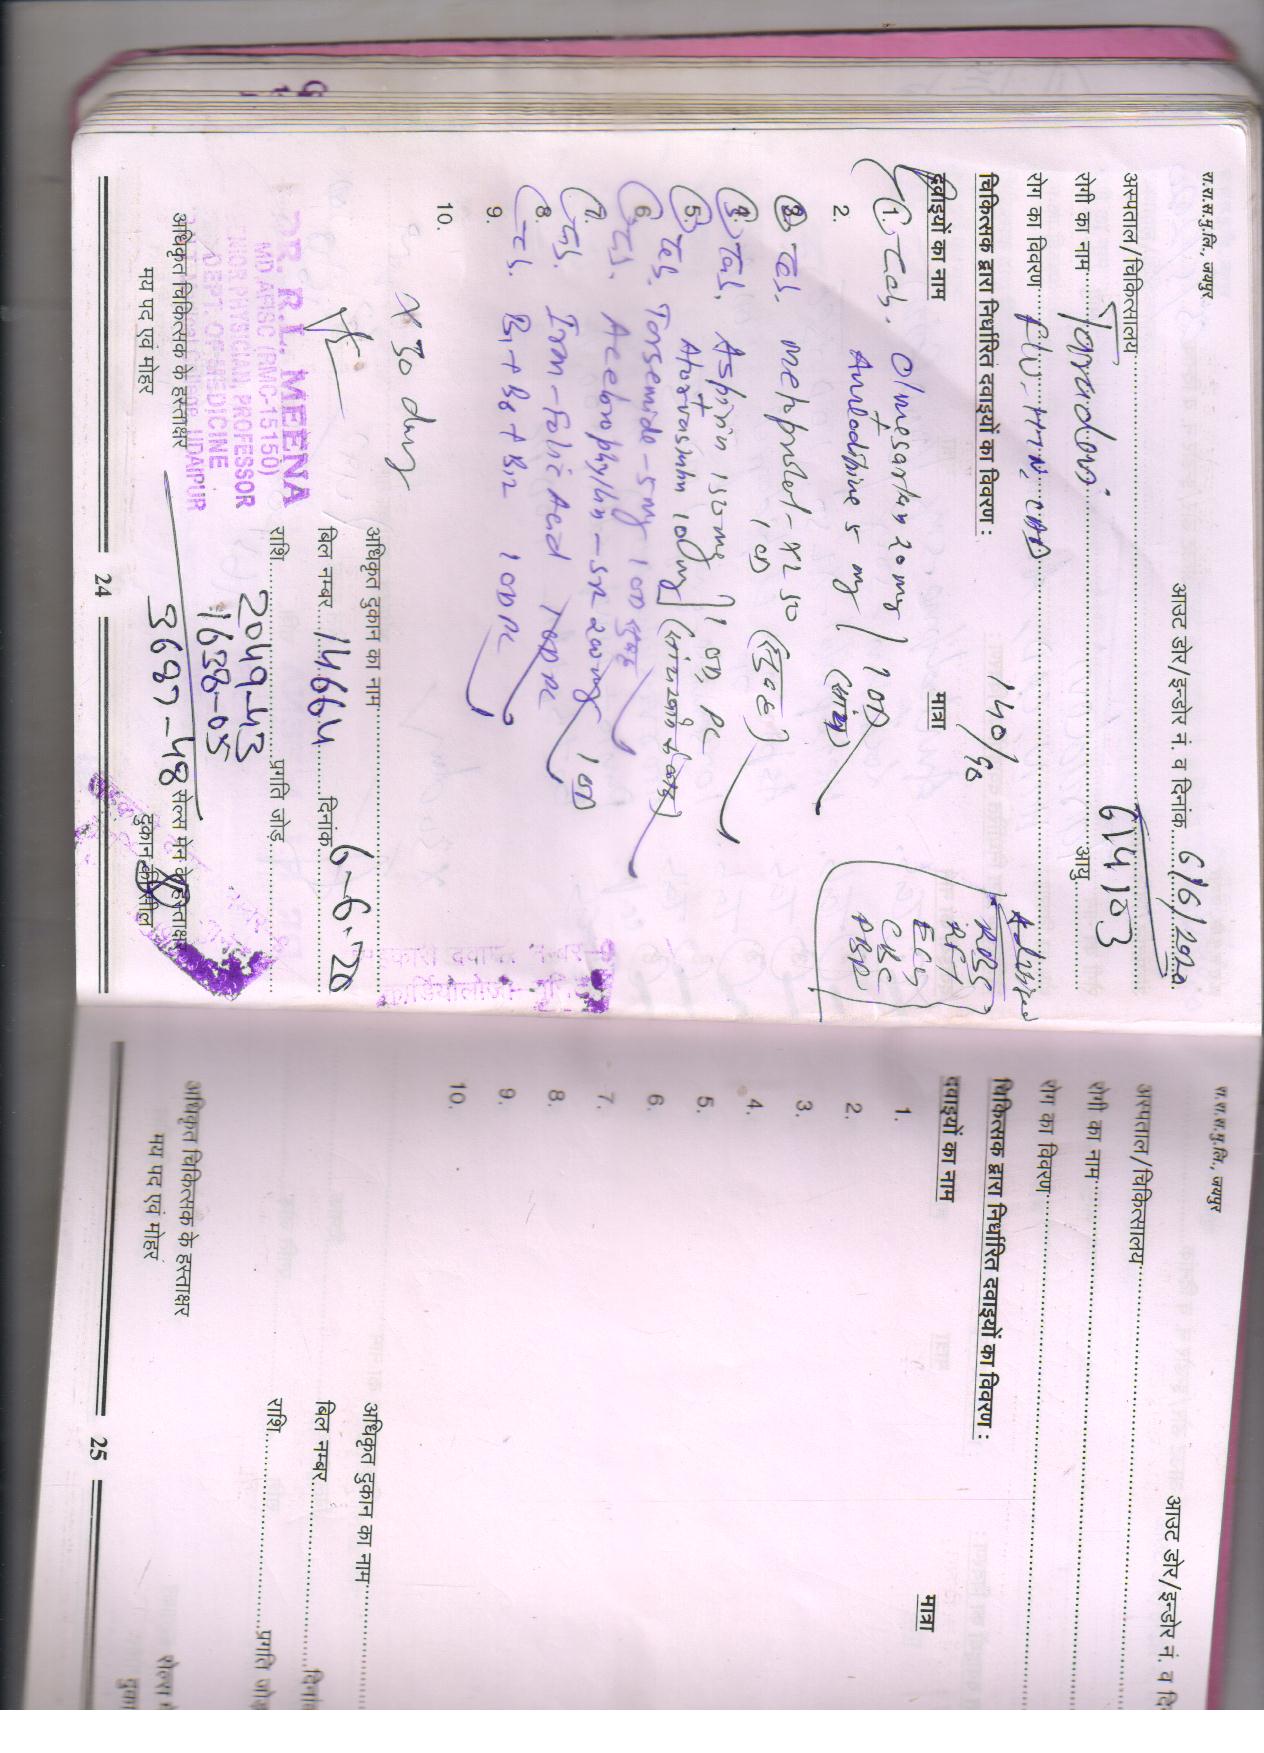 रा.रा.स.भु.लि., जयपुर
आउट डोर/इन्डोर नं. व दिनांक 6/6/2020
अस्पताल/चिकित्सालय
614103
रोगी का नाम
आयु
रोग का विवरण F/U- HTN, CAD
140/90
चिकित्सक द्वारा निर्धारित दवाइयों का विवरण :
दवाइयों का नाम
मात्रा
Advised
RBS
RFT
ECG
CBC
PBF
1. Tab. Olmesartan 20 mg
+
2. Amlodipine 5 mg
1 OD
(सांय)
3. Tab. Metoprolol-XL 50 1 OD (सुबह)
4. Tab. Aspirin 150 mg
+
Atorvastatin 10 mg
1 OD PC
5. Tab. Torsemide-5 mg 1 OD सुबह
6. Tab. Acebrophyllin-SR 200 mg 1 OD
7. Tab. Iron-Folic Acid 1 OD PC
8. Tab. B1 + B6 + B12 1 OD PC
9.
10.
x 30 days
DR. R.L. MEENA
MD APISC (RMC-15150)
SENIOR PHYSICIAN PROFESSOR
DEPT. OF MEDICINE
UDAIPUR
अधिकृत चिकित्सक के हस्ताक्षर
मय पद एवं मोहर
अधिकृत दुकान का नाम
बिल नम्बर 14664 दिनांक 6-6-20
राशि 2049-43 प्रगति जोड़
1638-05
3687-48
सेल्स मेन के हस्ताक्षर
दुकान की सील
24
रा.रा.स.भु.लि., जयपुर
आउट डोर/इन्डोर नं. व दि
अस्पताल/चिकित्सालय
रोगी का नाम
रोग का विवरण
चिकित्सक द्वारा निर्धारित दवाइयों का विवरण :
दवाइयों का नाम
मात्रा
1.
2.
3.
4.
5.
6.
7.
8.
9.
10.
अधिकृत दुकान का नाम
बिल नम्बर
राशि प्रगति जोड़
अधिकृत चिकित्सक के हस्ताक्षर
मय पद एवं मोहर
25